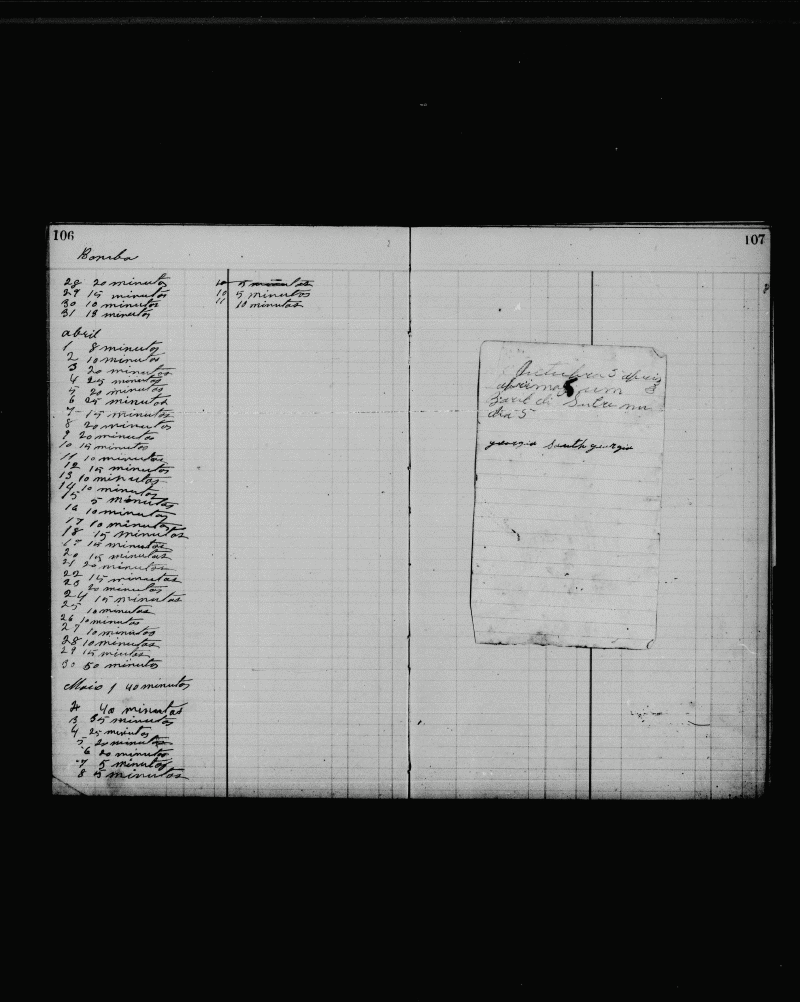 106
Bomba
28 20 minutos
29 15 minutos
30 10 minutos
31 18 minutos
abril
1 8 minutos
2 10 minutos
3 20 minutos
4 25 minutos
5 20 minutos
6 25 minutos
7 15 minutos
8 20 minutos
9 20 minutos
10 15 minutos
11 10 minutos
12 15 minutos
13 10 minutos
14 10 minutos
15 5 minutos
16 10 minutos
17 10 minutos
18 15 minutos
19 15 minutos
20 15 minutos
21 20 minutos
22 15 minutos
23 20 minutos
24 15 minutos
25 10 minutos
26 10 minutos
27 10 minutos
28 10 minutos
29 15 miutos
30 50 minutos
Maio 1 40 minutos
2 40 minutos
3 35 minutos
4 25 minutos
5 20 minutos
6 20 minutos
7 5 minutos
8 15 minutos
10 5 minutos
10 5 minutos
11 10 minutos
107
5
dia 5
georgia South georgia